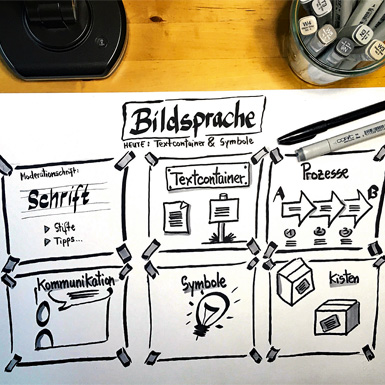 Bildsprache
HEUTE: Textcontainer & Symbole
Moderationsschrift:
Schrift
Stifte
Tipps...
Textcontainer
Prozesse
A B
1 2 3
Kommunikation
Symbole
Kisten